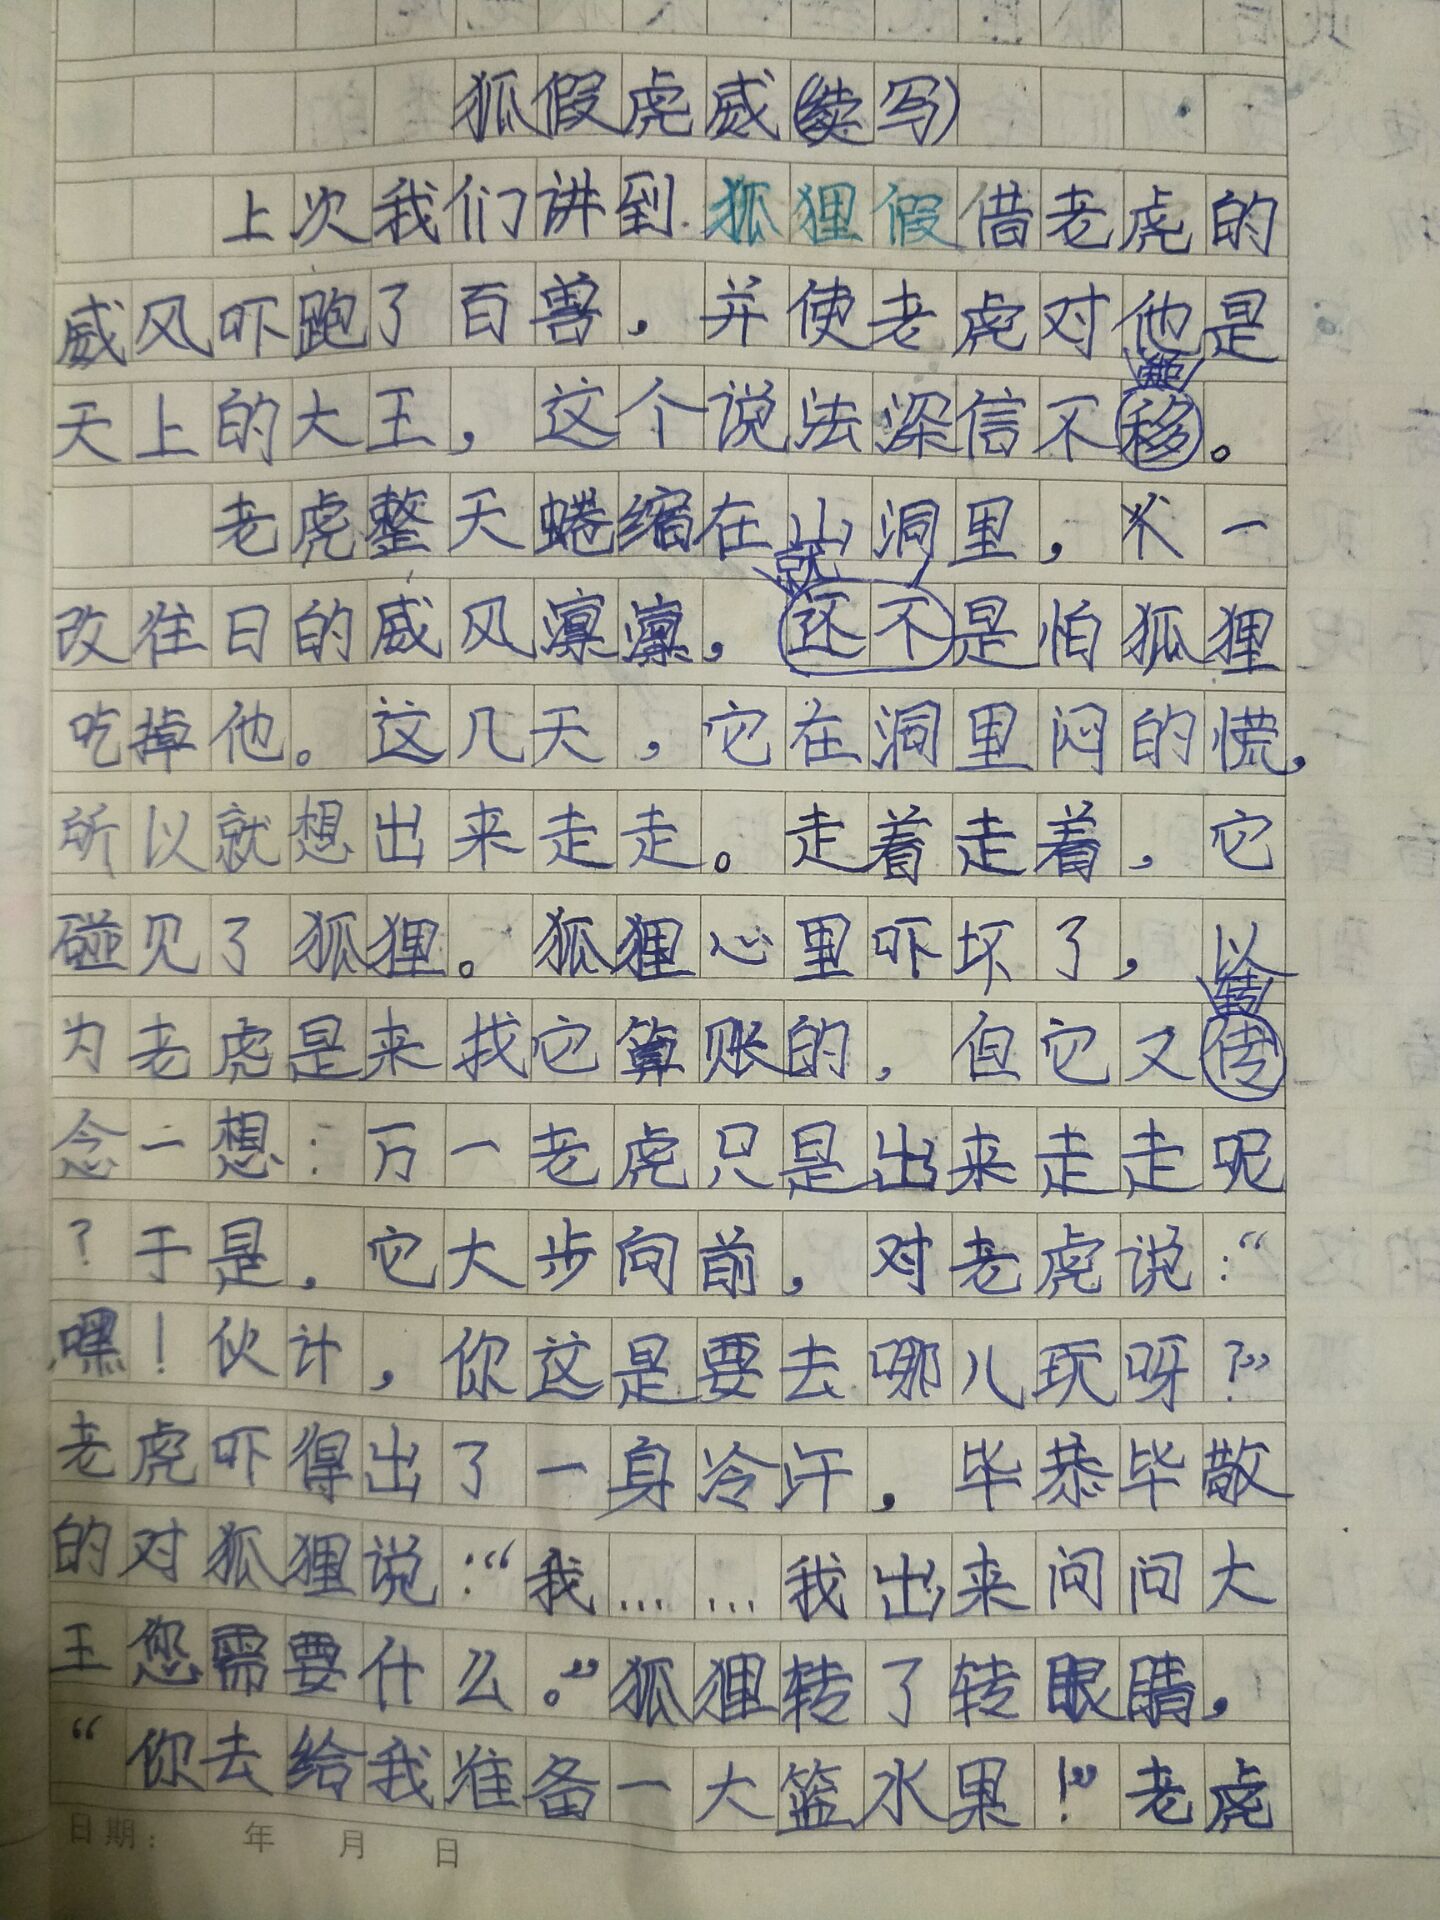 狐假虎威(续写)
上次我们讲到狐狸假借老虎的
威风吓跑了百兽，并使老虎对他是
天上的大王，这个说法深信不移。
老虎整天蜷缩在山洞里，不一
就
改往日的威风凛凛，还不是怕狐狸
吃掉他。这几天，它在洞里闷的慌，
所以就想出来走走。走着走着，它
碰见了狐狸。狐狸心里吓坏了，以
转
为老虎是来找它算账的，但它又传
念一想：万一老虎只是出来走走呢
？于是，它大步向前，对老虎说：“
嘿！伙计，你这是要去哪儿玩呀？”
老虎吓得出了一身冷汗，毕恭毕敬
的对狐狸说：“我……我出来问问大
王您需要什么。”狐狸转了转眼睛，
“你去给我准备一大篮水果！”老虎
日期： 年 月 日